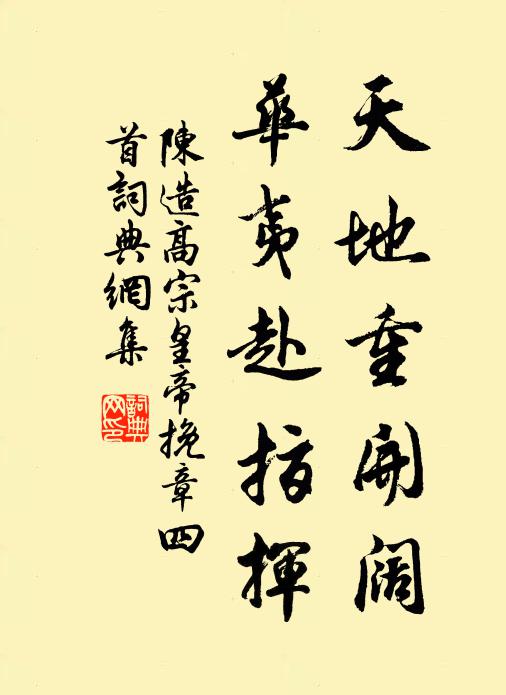 天地重開闊
華夷赴指揮
陳造高宗皇帝挽章四
首詞典網集
詞典
网印